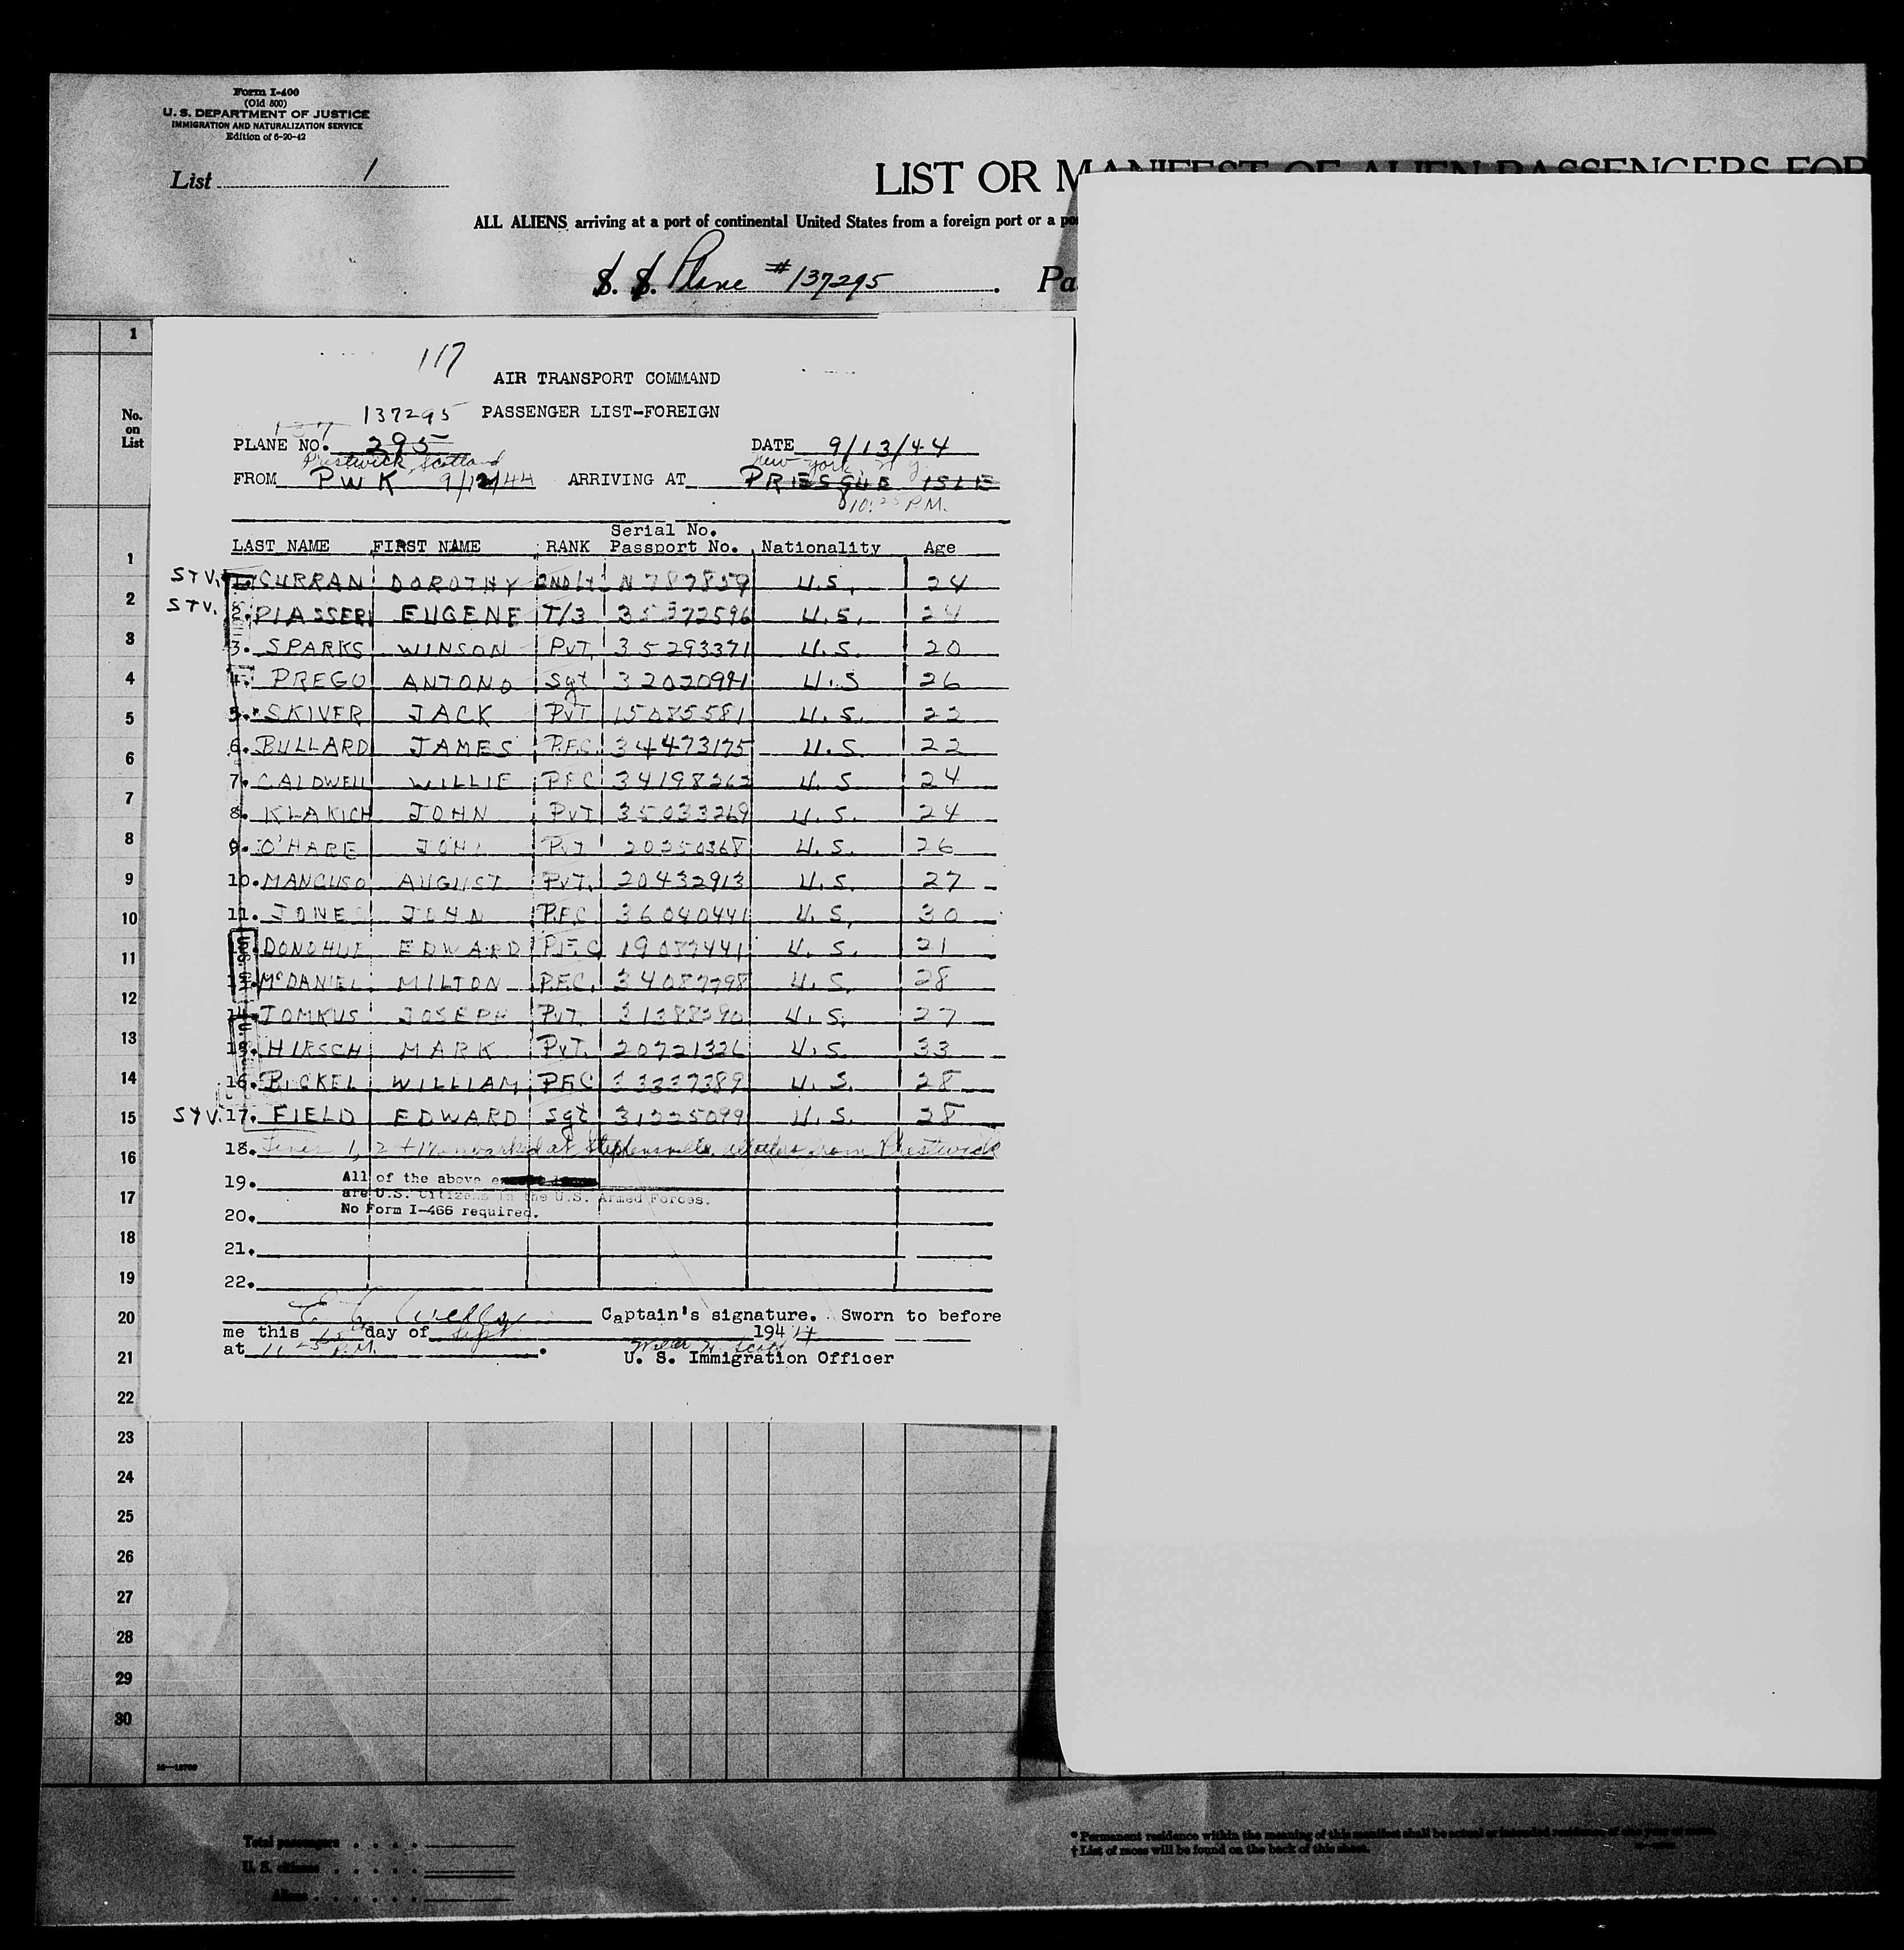 Form I-400
(Old 500)
U. S. DEPARTMENT OF JUSTICE
IMMIGRATION AND NATURALIZATION SERVICE
Edition of 6-20-42
List 1
LIST OR MANIFEST OF ALIEN PASSENGERS FOR
ALL ALIENS arriving at a port of continental United States from a foreign port or a po
S. S. Plane #137295. Pa
1
No. on List
117
AIR TRANSPORT COMMAND
137295 PASSENGER LIST-FOREIGN
137
PLANE NO. 295 DATE 9/13/44
Prestwick, Scotland New York, N.Y.
FROM PWK 9/12/44 ARRIVING AT PRIESQUE ISLE
10:25 P.M.
Serial No.
LAST NAME FIRST NAME RANK Passport No. Nationality Age
STV. 1. CURRAN DOROTHY 2ND/LT N 787859 U.S. 24
STV. 2. EUGENE T/3 35372596 U.S. 24
3. SPARKS WINSON PVT. 35293371 U.S. 20
4. PREGO ANTONO Sgt 32020991 U.S 26
5. SKIVER JACK PVT 15085581 U.S. 22
6. BULLARD JAMES P.F.C. 34473175 U.S 22
7. CALDWELL WILLIE PFC 34198262 U.S 24
8. KLAKICH JOHN PVT 35033269 U.S. 24
9. O'HARE JOHN PVT 20250368 U.S. 26
10. MANCUSO AUGUST PVT. 20432913 U.S. 27
11. JONES JOHN P.F.C 36040441 U.S. 30
DONOHUE EDWARD P.F.C 19087441 U.S. 21
McDANIEL MILTON P.F.C. 34087798 U.S. 28
14. TOMKUS JOSEPH PVT. 31388390 U.S. 27
15. HIRSCH MARK PVT. 20721326 U.S. 33
16. BICKEL WILLIAM PFC 33337389 U.S. 28
STV. 17. FIELD EDWARD Sgt 31225099 U.S. 28
18. Lines 1, 2 + 17 embarked at Stephensville, all others from Prestwick
19. All of the above
are U.S. Citizens in the U.S. Armed Forces.
20. No Form I-466 required.
21.
22.
Captain's signature. Sworn to before
me this 13 day of Sept 1944
at 11:25 P.M. . Walter H. Scott
U. S. Immigration Officer
1
2
3
4
5
6
7
8
9
10
11
12
13
14
15
16
17
18
19
20
21
22
23
24
25
26
27
28
29
30
Total passengers
U. S. citizens
Aliens
* Permanent residence within the meaning of this manifest shall be actual or intended residence of one year or more.
† List of races will be found on the back of this sheet.